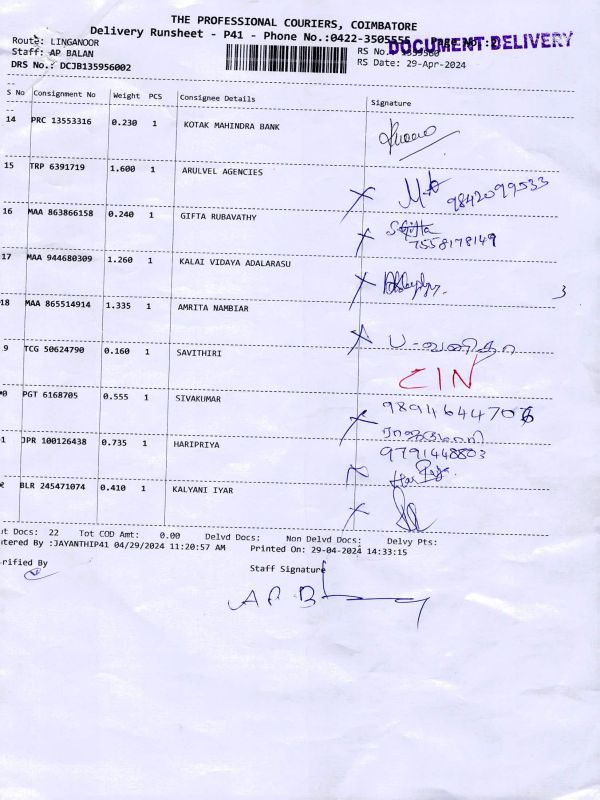 THE PROFESSIONAL COURIERS, COIMBATORE
Delivery Runsheet - P41 - Phone No.:0422-3505555
DOCUMENT DELIVERY
Route: LINGANOOR
Staff: AP BALAN RS No.
DRS No.: DCJB135956002 RS Date: 29-Apr-2024
S No Consignment No Weight PCS Consignee Details Signature
14 PRC 13553316 0.230 1 KOTAK MAHINDRA BANK
15 TRP 6391719 1.600 1 ARULVEL AGENCIES 9842099533
16 MAA 863866158 0.240 1 GIFTA RUBAVATHY SGifta
7558178149
17 MAA 944680309 1.260 1 KALAI VIDAYA ADALARASU
3
18 MAA 865514914 1.335 1 AMRITA NAMBIAR
ப. வனிதா
9 TCG 50624790 0.160 1 SAVITHIRI
CIN
0 PGT 6168705 0.555 1 SIVAKUMAR 9894644706
ராஜகுமாரி
1 JPR 100126438 0.735 1 HARIPRIYA 9791448803
Hari Priya
2 BLR 245471074 0.410 1 KALYANI IYAR
t Docs: 22 Tot COD Amt: 0.00 Delvd Docs: Non Delvd Docs: Delvy Pts:
tered By :JAYANTHIP41 04/29/2024 11:20:57 AM Printed On: 29-04-2024 14:33:15
rified By Staff Signature
A P B